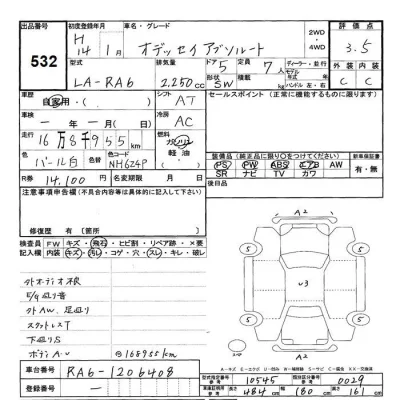 出品番号
532
初度登録年月
H 14年 1月
車名・グレード
オデッセイアブソルート
2WD
・
4WD
評価点
3.5
型式
LA-RA6
排気量
2,250cc
ドア 5
形状 SW
定員 7人
ディーラー・並行
モデル年式
ハンドル 左・右
外装 内装
C C
車歴
自家用・( )
シフト
AT
セールスポイント (正常に機能するものに限ります)
車検
一年 一月 一日
冷房
AC
走行
16万8千955km
燃料
ガソリン
軽油
( )
色
パール白
色コード
NH624P
装備品 (純正品に限り○をつけてください)
新車時保証書
PS PW ABS エアB AW
SR ナビ TV カワ
有・無
R券
14,100円
名義変更期限
月 日
後日品
注意事項申告欄 (不具合内容等は具体的に記入して下さい)
修復歴 有 [箇所 ]
検査員記入欄
FW キズ・飛石・ヒビ割・リペア跡・×要
内装 キズ・汚れ・コゲ・穴・スレ・キレ・破レ
A2
5 5
U3
5 5
A2
外AW、足廻り
スタットレスT
下廻りS
@168955km
車台番号
RA6-1206408
登録番号
—
型式指定番号
10545
類別区分番号
0029
長さ 484cm 幅 180cm 高さ 161cm